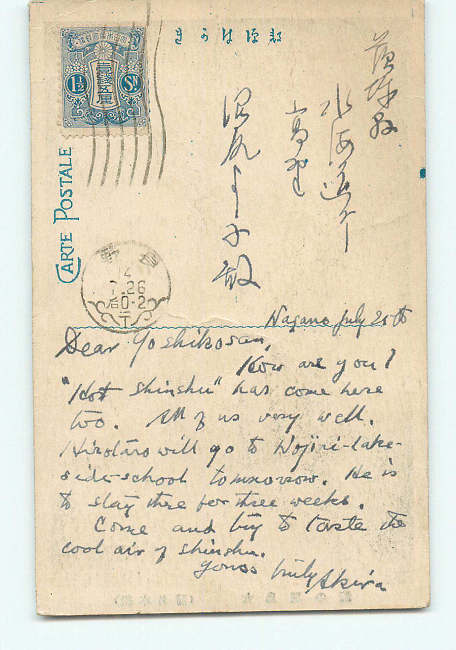 きかは便郵
大日本帝國郵便
壹錢五厘
1½ Sn.
CARTE POSTALE
茨城縣
水海道町
4
7.26
后0-2
Nagano July 26th
Dear Yoshiko san,
How are you?
"Hot Shinshu" has come here
too. All of us very well.
Hirotaro will go to Nojiri-lake-
side-school tomorrow. He is
to stay there for three weeks.
Come and try to taste the
cool air of Shinshu.
Yours truly Akira